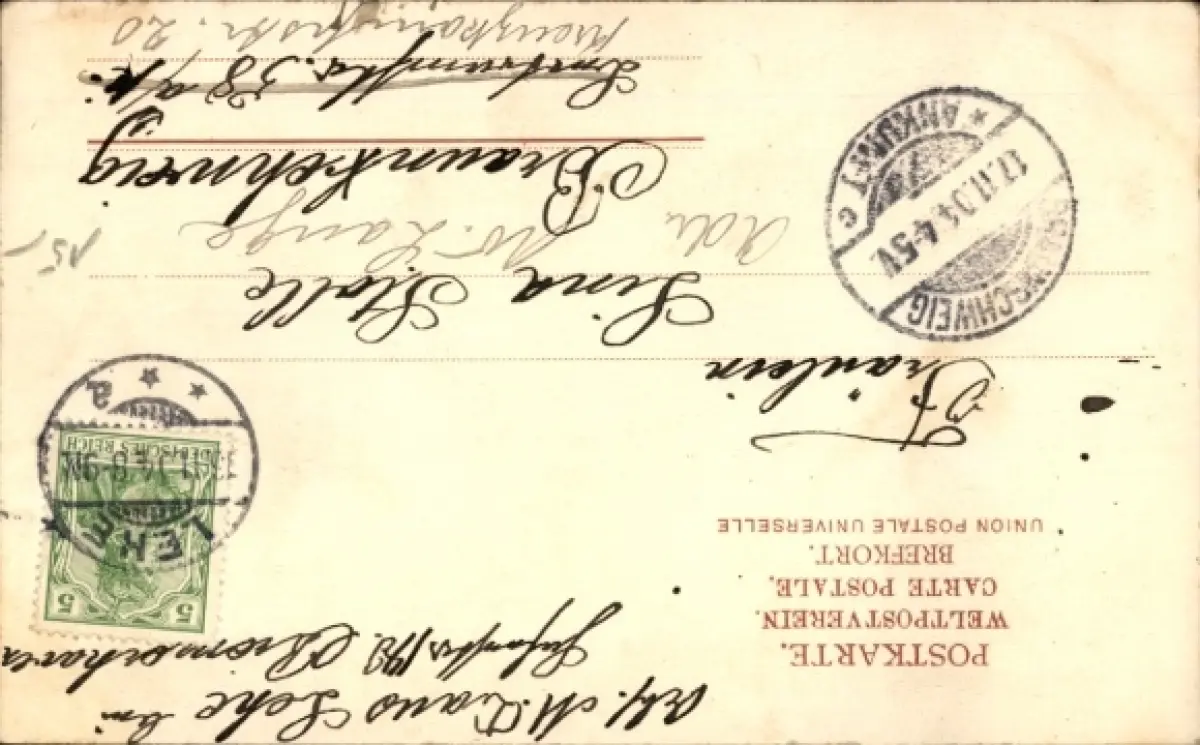 Abs. M. Lehe bei
Hafenstr. 190. Bremerhaven
POSTKARTE.
WELTPOSTVEREIN.
CARTE POSTALE.
BREFKORT.
UNION POSTALE UNIVERSELLE
5 5
DEUTSCHES REICH
LEHE
11.04 8-9N.
* * a
Fräulein
Lina Stolle
Adr. W. Lange
Braunschweig
38 a/p.
Kreuzkampstr. 20
BRAUNSCHWEIG
17.11.04.4-5V.
* ANKUNFT C
15